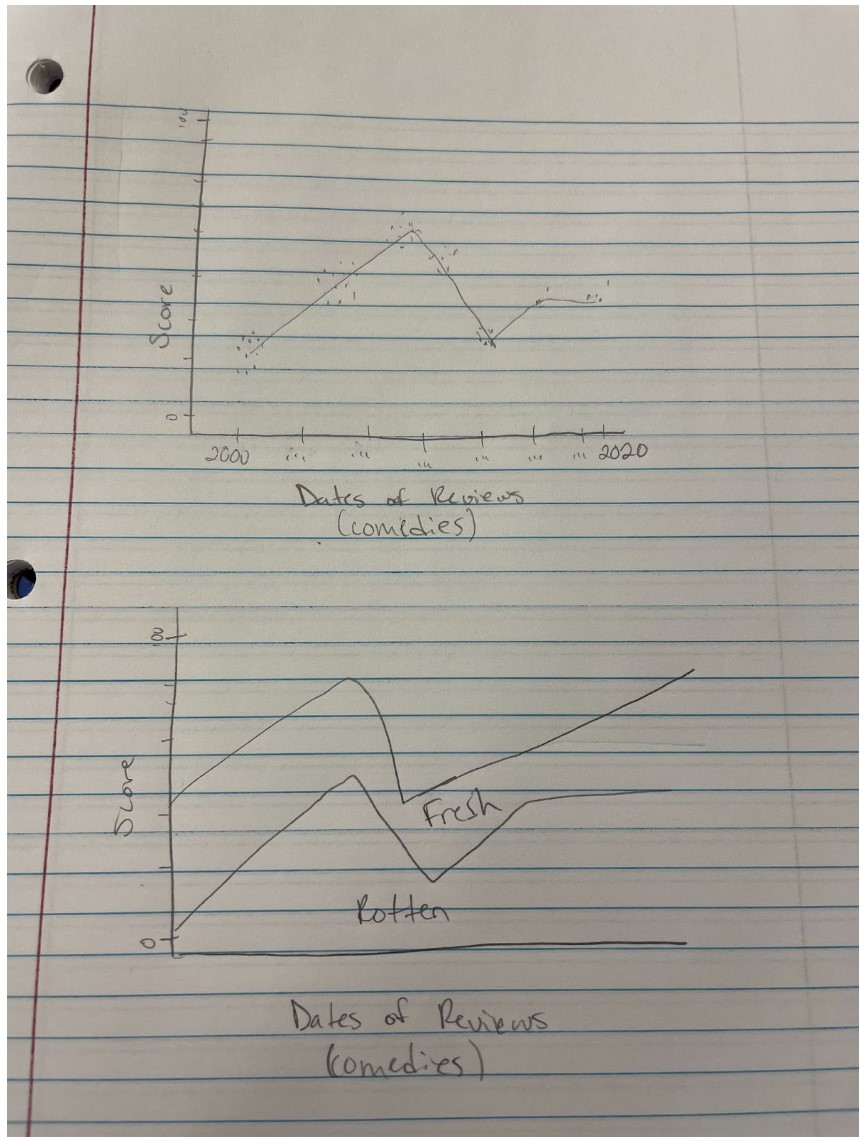 100
Score
0
2000 ... ... ... ... ... ... 2020
Dates of Reviews
(comedies)
Score
0
Fresh
Rotten
Dates of Reviews
(comedies)